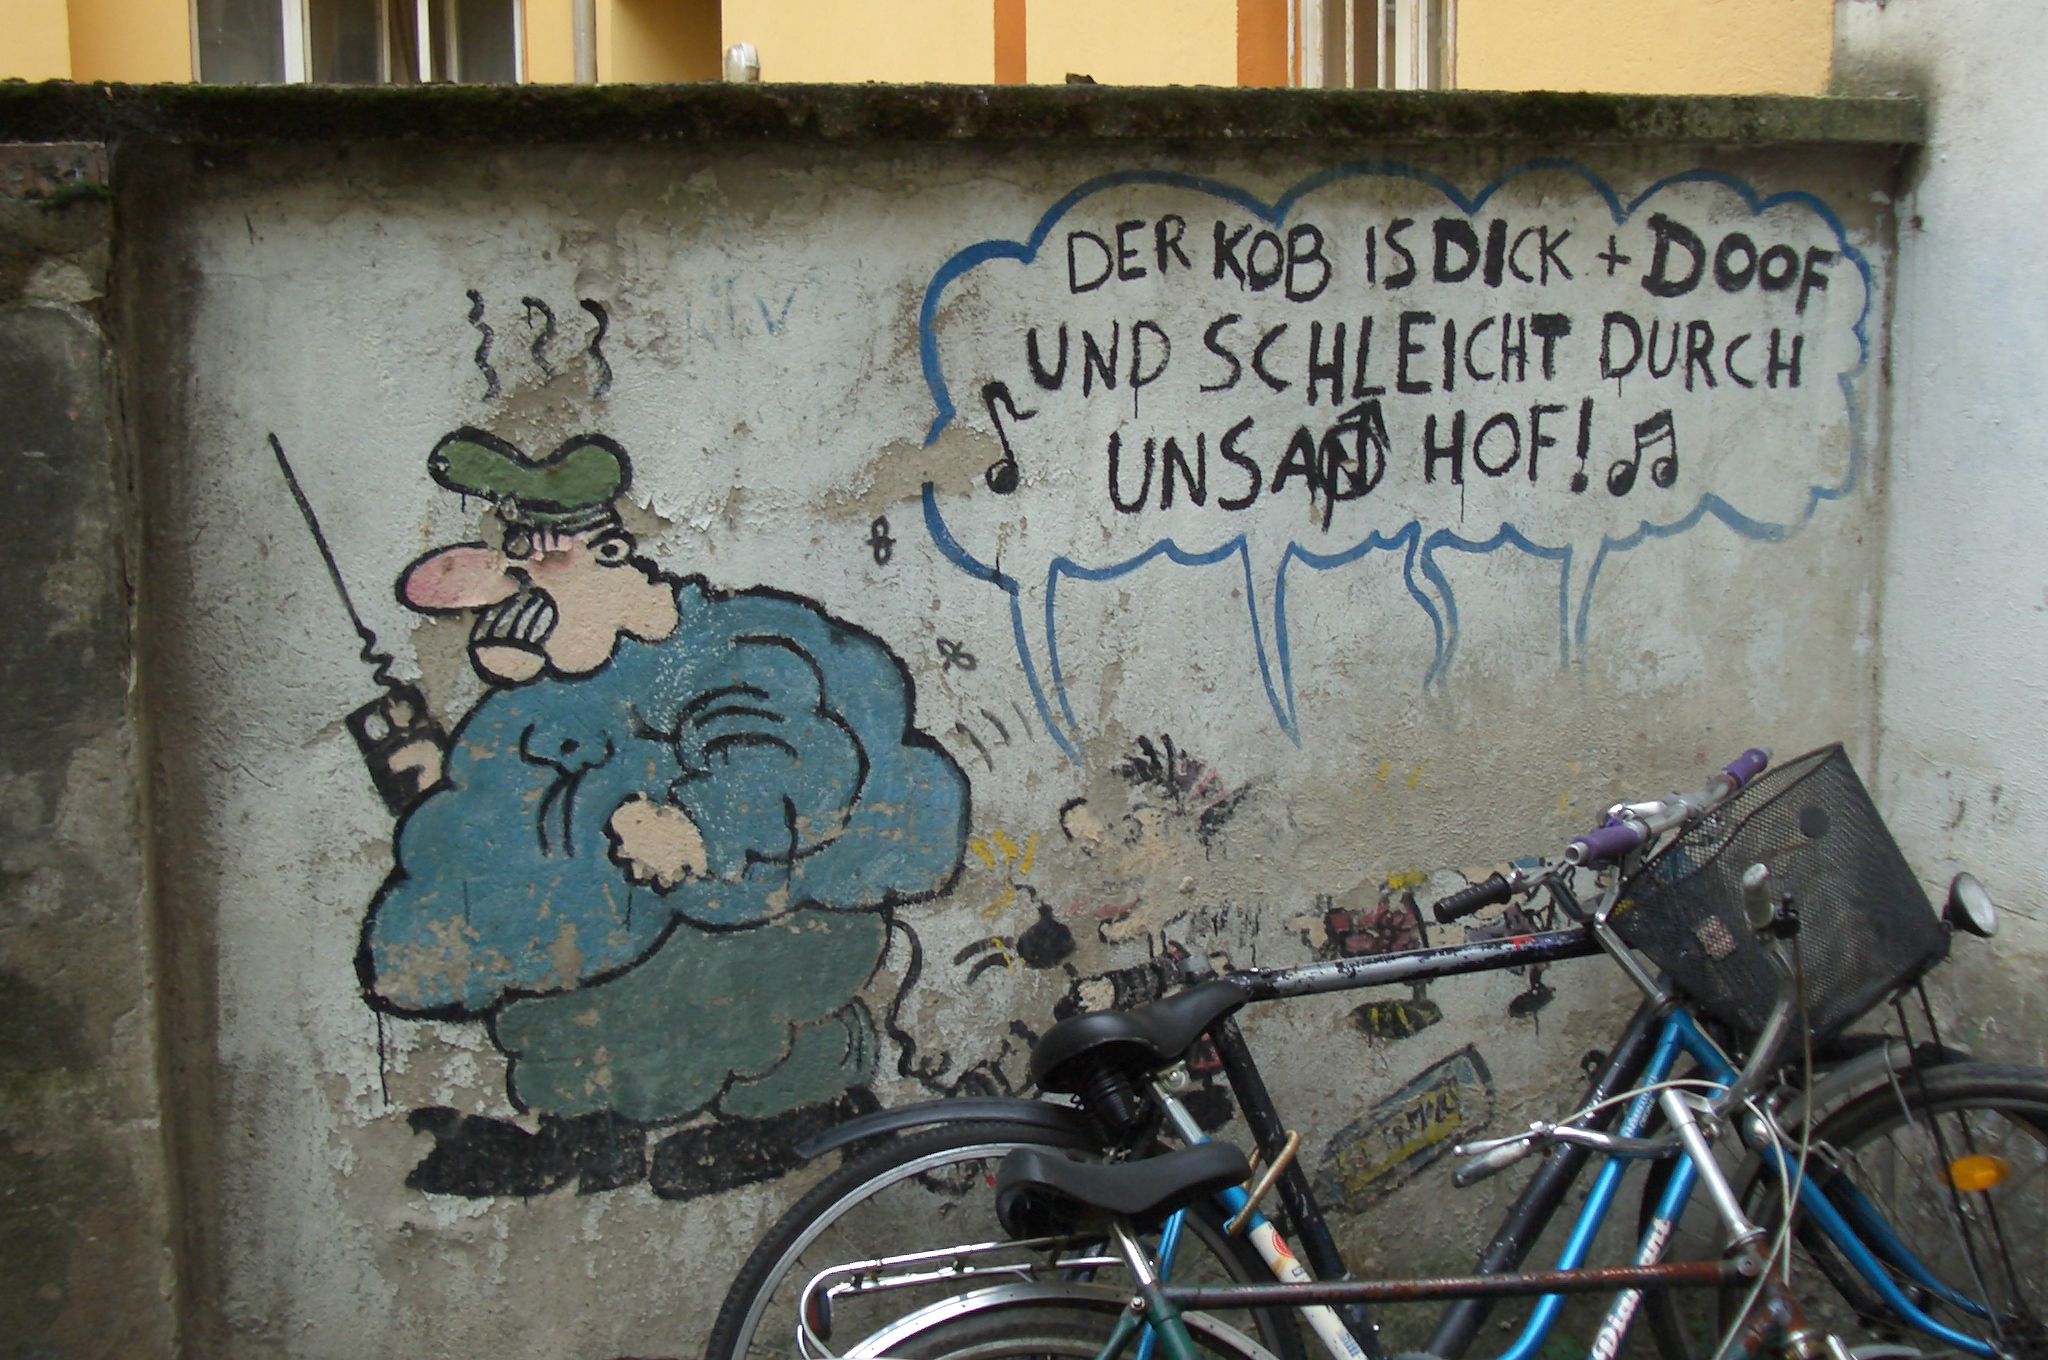 DER KOB IS DICK + DOOF
UND SCHLEICHT DURCH
UNSAN HOF!
Diamant